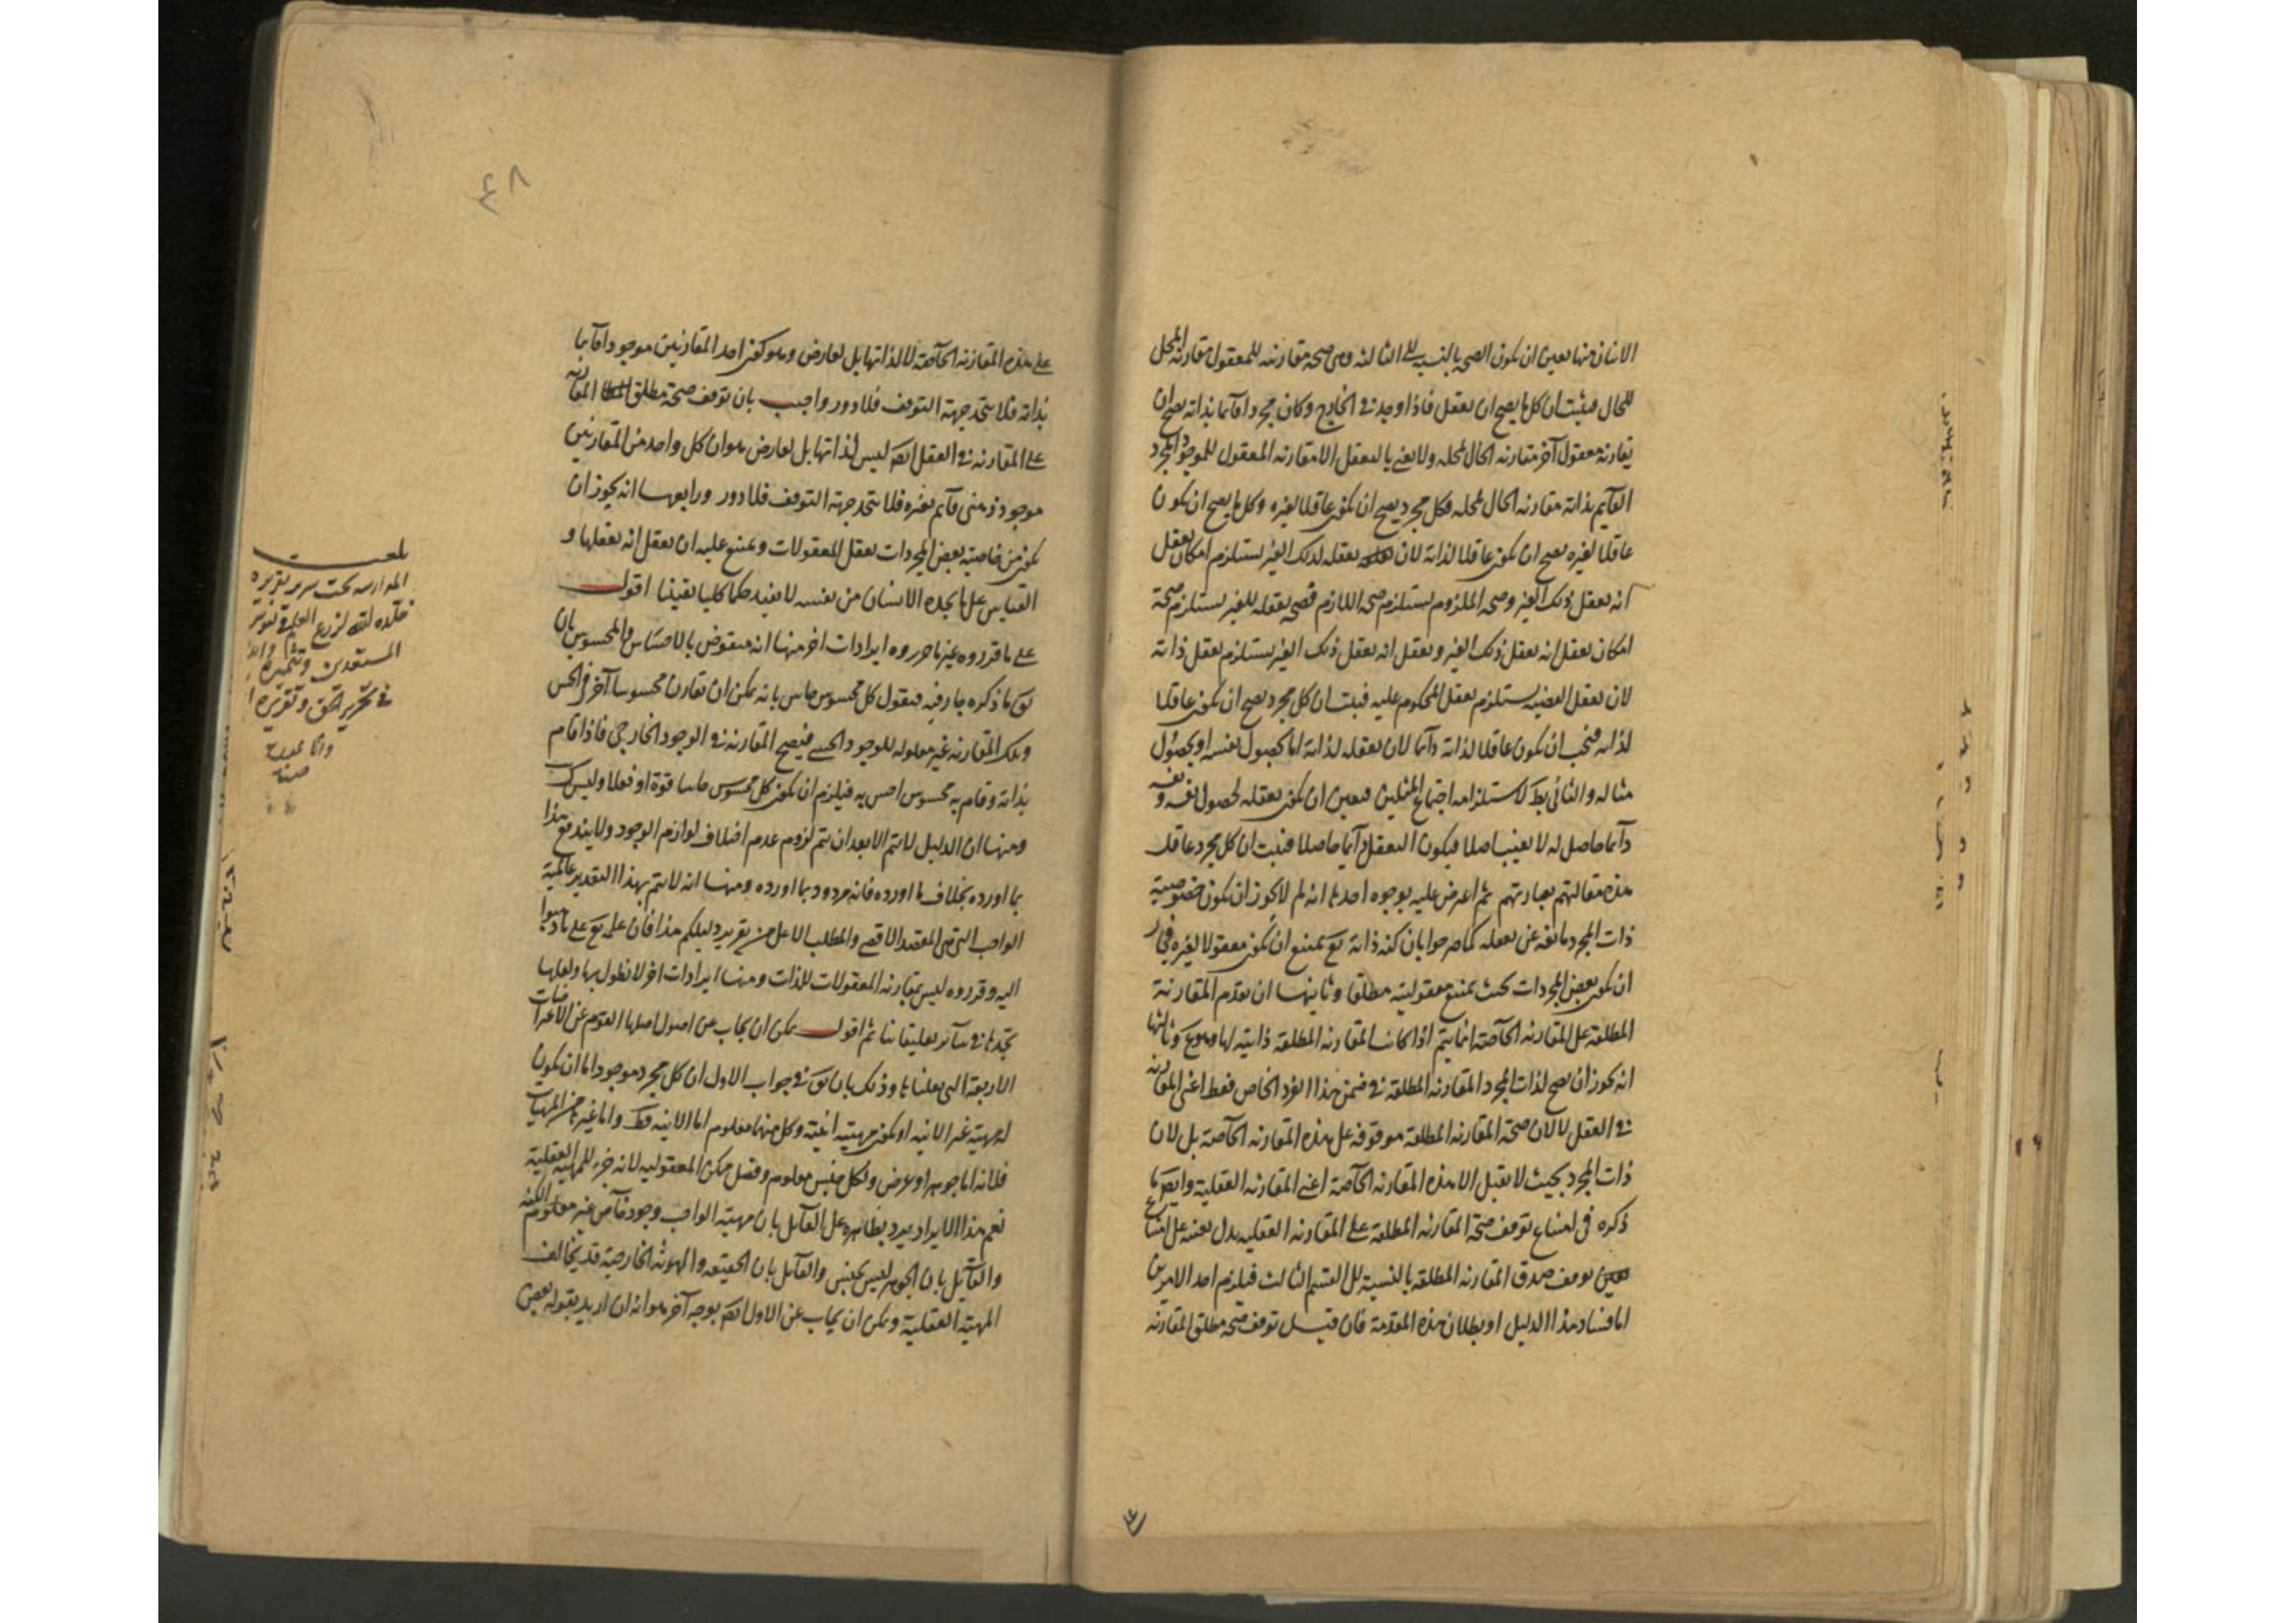 الاثنان منها تعين ان يكون الصحة بالنسبة الى الثالثة وهى صحة مقارنته للمعقول مقارنة المحل
للحال فيثبت ان كل ما يصح ان يعقل فاذا وجد فى الخارج وكان مجردا قائما بذاته يصح ان
يقارنه معقول آخر مقارنة الحال لمحله ولا نعنى بالتعقل الا مقارنة المعقول للموجود المجرد
القائم بذاته مقارنة الحال لمحله فكل مجرد يصح ان يكون عاقلا لغيره وكل ما يصح ان يكون
عاقلا لغيره يصح ان يكون عاقلا لذاته لان تعقله لذلك الغير يستلزم امكان تعقل
انه يعقل ذلك الغير وصحة الملزوم يستلزم صحة اللازم فصحة تعقله للغير يستلزم صحة
امكان تعقل انه يعقل ذلك الغير وتعقل انه يعقل ذلك الغير يستلزم تعقل ذاته
لان تعقل القضية يستلزم تعقل المحكوم عليه فثبت ان كل مجرد يصح ان يكون عاقلا
لذاته فيجب ان يكون عاقلا لذاته دائما لان تعقله لذاته اما بحصول نفسه او بحصول
مثاله والثانى بط لاستلزامه اجتماع المثلين فتعين ان يكون تعقله لحصول نفسه ونفسه
دائما حاصل له لا يغيب اصلا فيكون التعقل دائما حاصلا فثبت ان كل مجرد عاقل
هذه مقالتهم بعبارتهم ثم اعترض عليه بوجوه احدها انه لم لا يجوز ان يكون خصوصية
ذات المجرد مانعة عن تعقله كما صرحوا بان كنه ذاته تع يمتنع ان يكون معقولا لغيره فجاز
ان يكون بعض المجردات بحيث يمتنع معقوليته مطلقا وثانيها ان تقدم المقارنة
المطلقة على المقارنة الخاصة انما يتم اذا كانت المقارنة المطلقة ذاتية لها وهو مم وثالثها
انه يجوز ان يصح لذات المجرد المقارنة المطلقة فى ضمن هذا الفرد الخاص فقط اعنى المقارنة
فى العقل لا لان صحة المقارنة المطلقة موقوفة على هذه المقارنة الخاصة بل لان
ذات المجرد بحيث لا تقبل الا هذه المقارنة الخاصة اعنى المقارنة العقلية وايضا ما
ذكره فى امتناع توقف صحة المقارنة المطلقة على المقارنة العقلية يدل بعينه على امتناع
توقف صدق المقارنة المطلقة بالنسبة الى القسم الثالث فيلزم احد الامرين
اما فساد هذا الدليل او بطلان هذه المقدمة فان قيل توقف صحة مطلق المقارنة
٤٨
على هذه المقارنة الخاصة لا لذاتها بل لعارض وهو كون احد المقارنين موجودا قائما
بذاته فلا يتحد جهة التوقف فلا دور واجيب بان توقف صحة مطلق المقارنة
على المقارنة فى العقل ايضا ليس لذاتها بل لعارض هو ان كل واحد من المقارنين
موجود ذهنى قائم بغيره فلا يتحد جهة التوقف فلا دور ورابعها انه يجوز ان
يكون من خاصية بعض المجردات تعقل المعقولات ويمتنع عليه ان يعقل انه يعقلها و
القياس على ما يجده الانسان من نفسه لا يفيد حكما كليا يقينا اقول
على ما قرروه غير ما حرروه ايرادات اخر منها انه منقوض بالاحساس والمحسوس بان
يق ما ذكره جار فيه فنقول كل محسوس حاس بانه يمكن ان يقارن محسوسا آخر فى الحس
وتلك المقارنة غير معلولة للوجود الحسى فيصح المقارنة فى الوجود الخارجى فاذا قام
بذاته وقام به محسوس احس به فيلزم ان يكون كل محسوس حاسا قوة او فعلا وليس كـ
ومنها ان الدليل لا يتم الا بعد ان يتم لزوم عدم اختلاف لوازم الوجود ولا يندفع هذا
بما اورده بخلاف ما اورده فانه مردود بما اورده ومنها انه لا يتم بهذا التقدير عالمية
الواجب التى هى المقصد الاقصى والمطلب الاعلى من تقرير دليلكم هذا فان علمه تع على ما ذهبوا
اليه وقرروه ليس بمقارنة المعقولات للذات ومنها ايرادات اخر لا نطول بها ولعلها
تجدها فى سائر تعليقاتنا ثم اقول يمكن ان يجاب عن اصول اصلها القوم عن الاعتراضات
الاربعة التى نقلناها وذلك بان يق فى جواب الاول ان كل مجرد موجود اما ان يكون
له مهية غير الانية او يكون مهيته انيته وكل منها معلوم اما الانية فظ واما غيرها من المهيات
فلانه اما جوهر او عرض ولكل جنس معلوم وفصل ممكن المعقولية لانه جزء للمهية العقلية
نعم هذا الايراد يرد بظاهره على القائل بان مهية الواجب وجود خاص غير معلوم الكنه
والقائل بان الجوهر ليس بجنس والقائل بان الحقيقة والهوية الخارجية قد يخالف
المهية العقلية ويمكن ان يجاب عن الاول ايضا بوجه آخر هو انه ان اريد بقوله بعض
بلغت
المدارسة تحت سرير تقريره
خلده الله لزرع العلم فى
المستعدين
فى تحرير الحق وتقريره